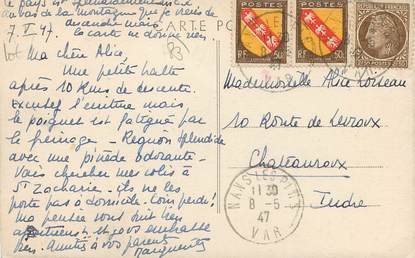 le pays est
au bas de la montagne que je viens de
7.5.47
dimanche mais
la carte ne donne rien
CARTE PO
Ma chère Alice
Une petite halte
après 10 Kms de descente.
Excusez l'écriture mais
le poignet est fatigué par
le freinage - Région splendide
avec une pinède odorante.
Vais chercher mes colis à
St Zacharie - ils ne les
porte pas à domicile. Coin perdu!
Ma pensée vous suit
et je vous embrasse
bien. Amitiés à vos parents
Marguerite
POSTES
RF
50
POSTES
RF
50
Mademoiselle Alice Loiseau
10 Route de Levroux
Chateauroux
Indre
NANS LES PINS
11 30
8 - 5
47
VAR